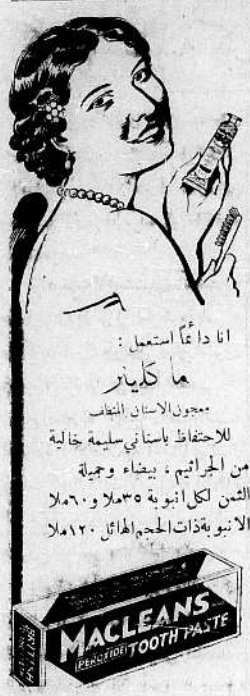 انا دائماً استعمل :
ماكلينز
معجون الاسنان المنظف
للاحتفاظ باسناني سليمة خالية
من الجراثيم ، بيضاء وجميلة
الثمن لكل انبوبة ٣٥ملا و٦٠ملا
الانبوبة ذات الحجم الهائل ١٢٠ملا
BRITISH
MACLEANS
PEROXIDE TOOTH PASTE